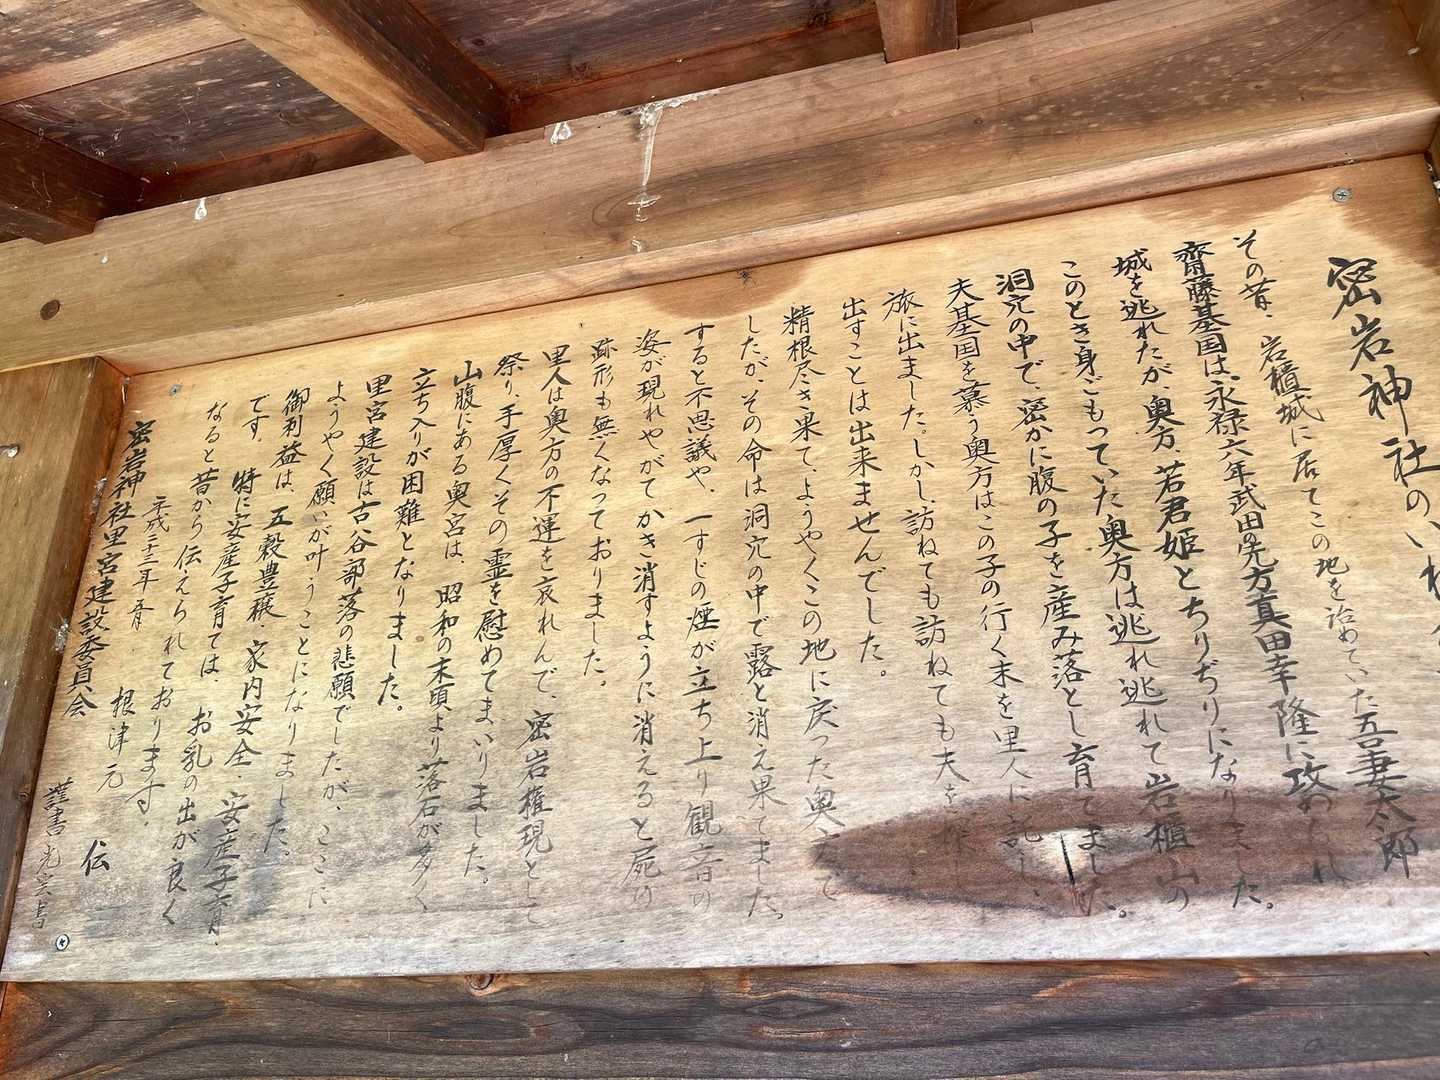 密岩神社のいわ
その昔、岩櫃城に居てこの地を治めていた吾妻太郎
齋藤基国は、永禄六年武田の先方真田幸隆に攻められ
城を逃れたが、奥方、若君姫とちりぢりになりました。
このとき身ごもっていた奥方は逃れ逃れて岩櫃山の
洞穴の中で、密かに腹の子を産み落とし育てました。
夫基国を慕う奥方はこの子の行く末を里人に託し、
旅に出ました。しかし、訪ねても訪ねても夫を
出すことは出来ませんでした。
精根尽き果て、ようやくこの地に戻った奥方で
したが、その命は洞穴の中で露と消え果てました。
すると不思議や、一すじの煙が立ち上り観音の
姿が現れやがてかき消すように消えると屍の
跡形も無くなっておりました。
里人は奥方の不運を哀れんで、密岩権現として
祭り、手厚くその霊を慰めてまいりました。
山腹にある奥宮は、昭和の末頃より落石が多く
立ち入りが困難となりました。
里宮建設は古谷部落の悲願でしたが、ここに
ようやく願いが叶うことになりました。
御利益は、五穀豊穣・家内安全・安産子育・
です。特に安産子育ては、お乳の出が良く
なると昔から伝えられております。
平成二十三年 吉月
密岩神社里宮建設委員会 根津 元 伝
謹書